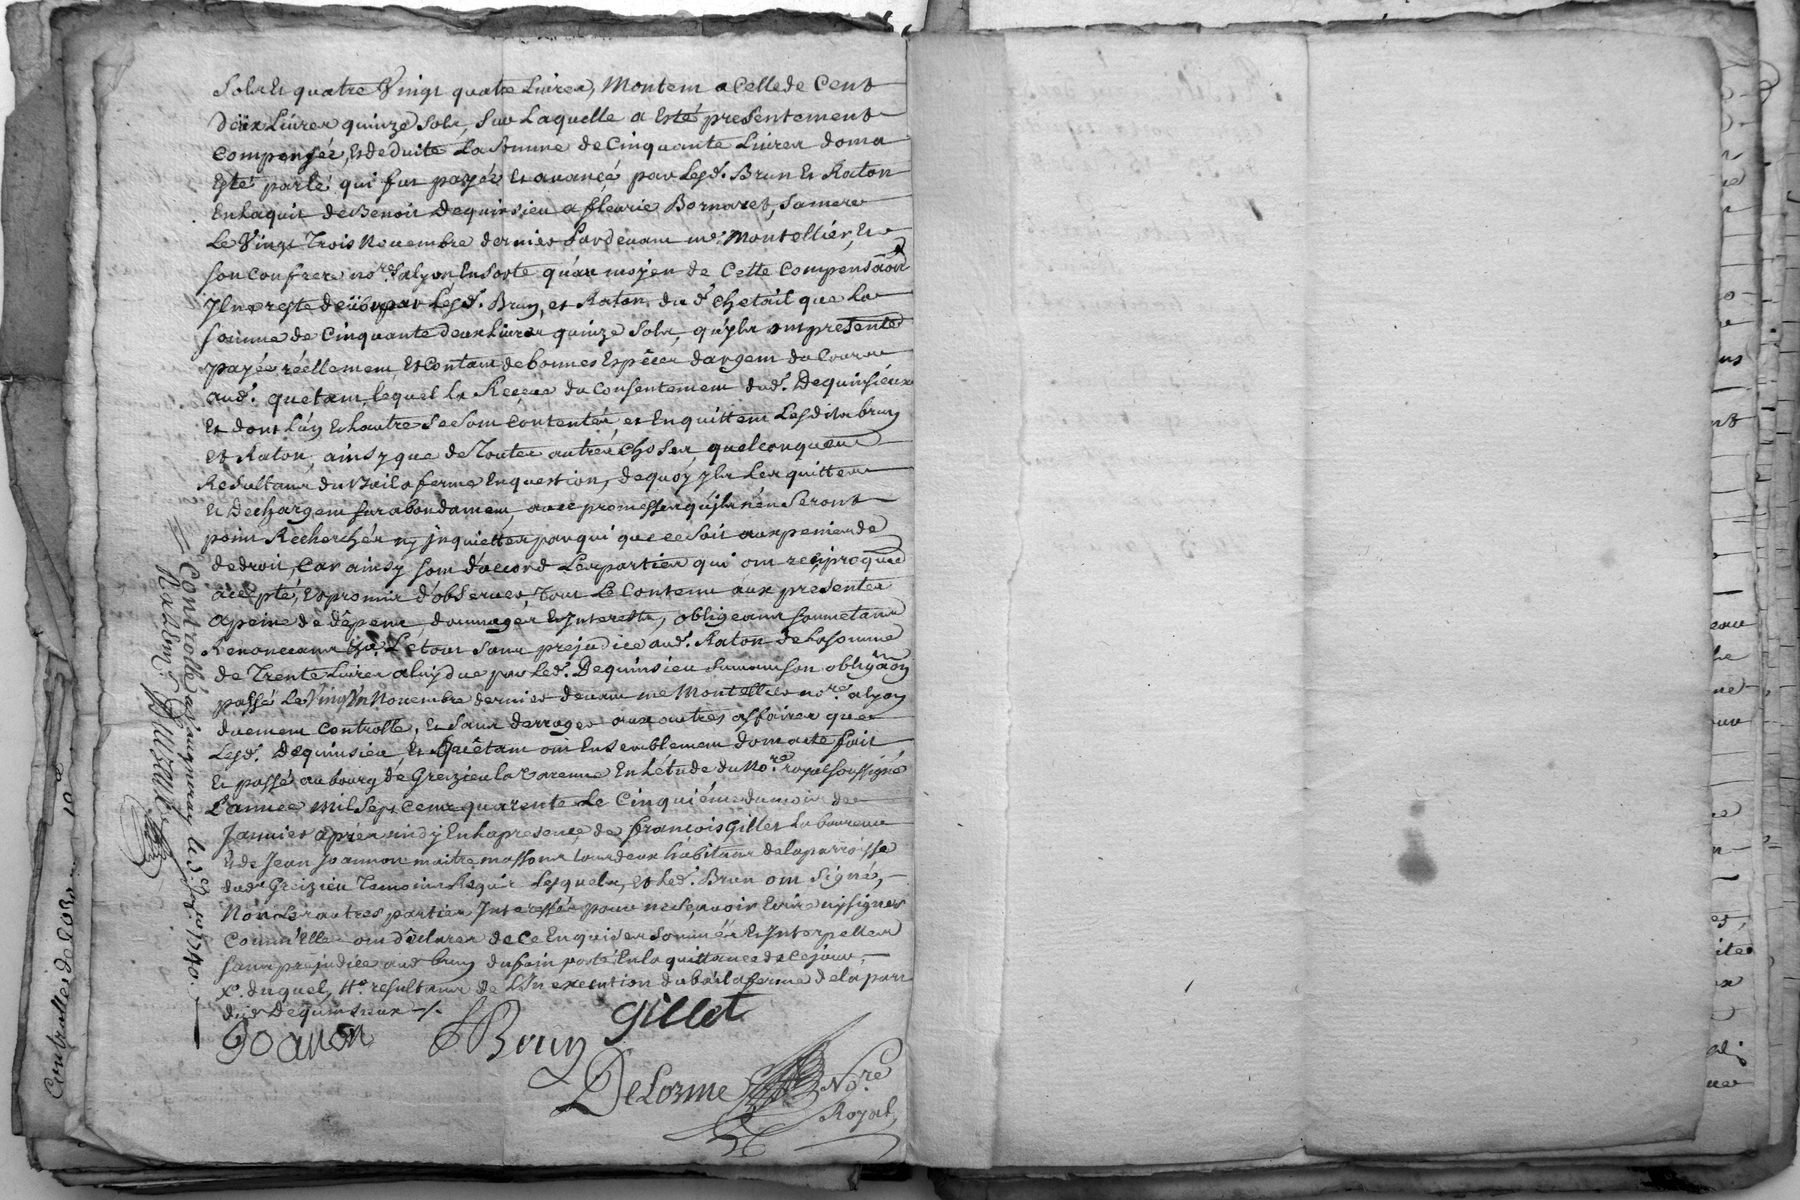 Sols Et quatre Vingt quatre Livres, Montent a Celle de Cent
deux Livres quinze Sols, Sur Laquelle a Esté presentement
Compensée, Et deduite La Somme de Cinquante Livres dont a
Esté parlé qui fut payée Et avancée par Lesd. Brun Et Raton
En Laquit de Benoit Dequinsieu a fleurie Bornaret, Sa mere
Le Vingt Trois Novembre dernier Pardevant me. Montellier, Et
Son Confrere no.res a Lyon En Sorte qu'au moyen de Cette Compensaõn
Il ne reste deüb par Lesd. Brun, et Raton, du d. Chetail que La
Somme de Cinquante deux Livres quinze Sols, qu'yls ont presentem.
payée réellement Et Contant de bonnes Espèces d'argent du Cours
aud. quetant, lequel la Reçeue du Consentement dud. Dequinsieux
Et dont L'un Et Lautre Se Sont Contentés, et En quittent Lesdits brun
et Raton, ainsy que de Toutes autres Choses quelconques
Resultant du Bail a ferme En question, de quoy yls Les quittent
Et Dechargent Surabondament avec promesses qu'yls n'en Seront
point Recherchés ny Inquiettes par qui que ce Soit aux peines de
de droit, Car ainsy Sont d'accord Les parties qui ont reciproquem.
accepté, Et promis d'observer, Tout Le Contenu aux presentes
a peine de dêpens dommages Et Interests, obligeant Soumetant
Renonceant &a. Le tout Sans prejudice aud. Raton de La Somme
de Trente Livres a luy due par Led. Dequinsieu Suivant Son obligaõn
passé Le Vingt Novembre dernier devant me Montellier no.re a Lyon
duement Controllé, Et Sans derroger aux autres affaires que
Lesd. Dequinsieu, Et Quêtant ont Ensemblement dont acte fait
Et passé au bourg de Greizieu la Varenne En L'étude du No.re royal Soussigné
L'annee mil Sept Cent quarente Le Cinquiéme du mois de
Janvier aprés midy En La presence de françois Gillet Laboureur
Et de Jean Joannon maitre masson tous deux habitans de la parroisse
dud. Greizieu Temoins Requis Lesquels, et Led. Brun ont Signé,
Non Les autres parties Interessées pour ne Sçavoir Ecrire ny Signer
Comm'Elles ont déclarer de ce Enquises Sommées Et Interpellees
Sans prejudice aud brun du foin porté En La quittance de Ce jour,
X.e duquel, Et resultant de L'In execution du bail a ferme de la part
dud. Dequinsieux ./.
Joanon LBrun Gillet
DeLorme No.re
Royal
Controllé a Le 5 1740.